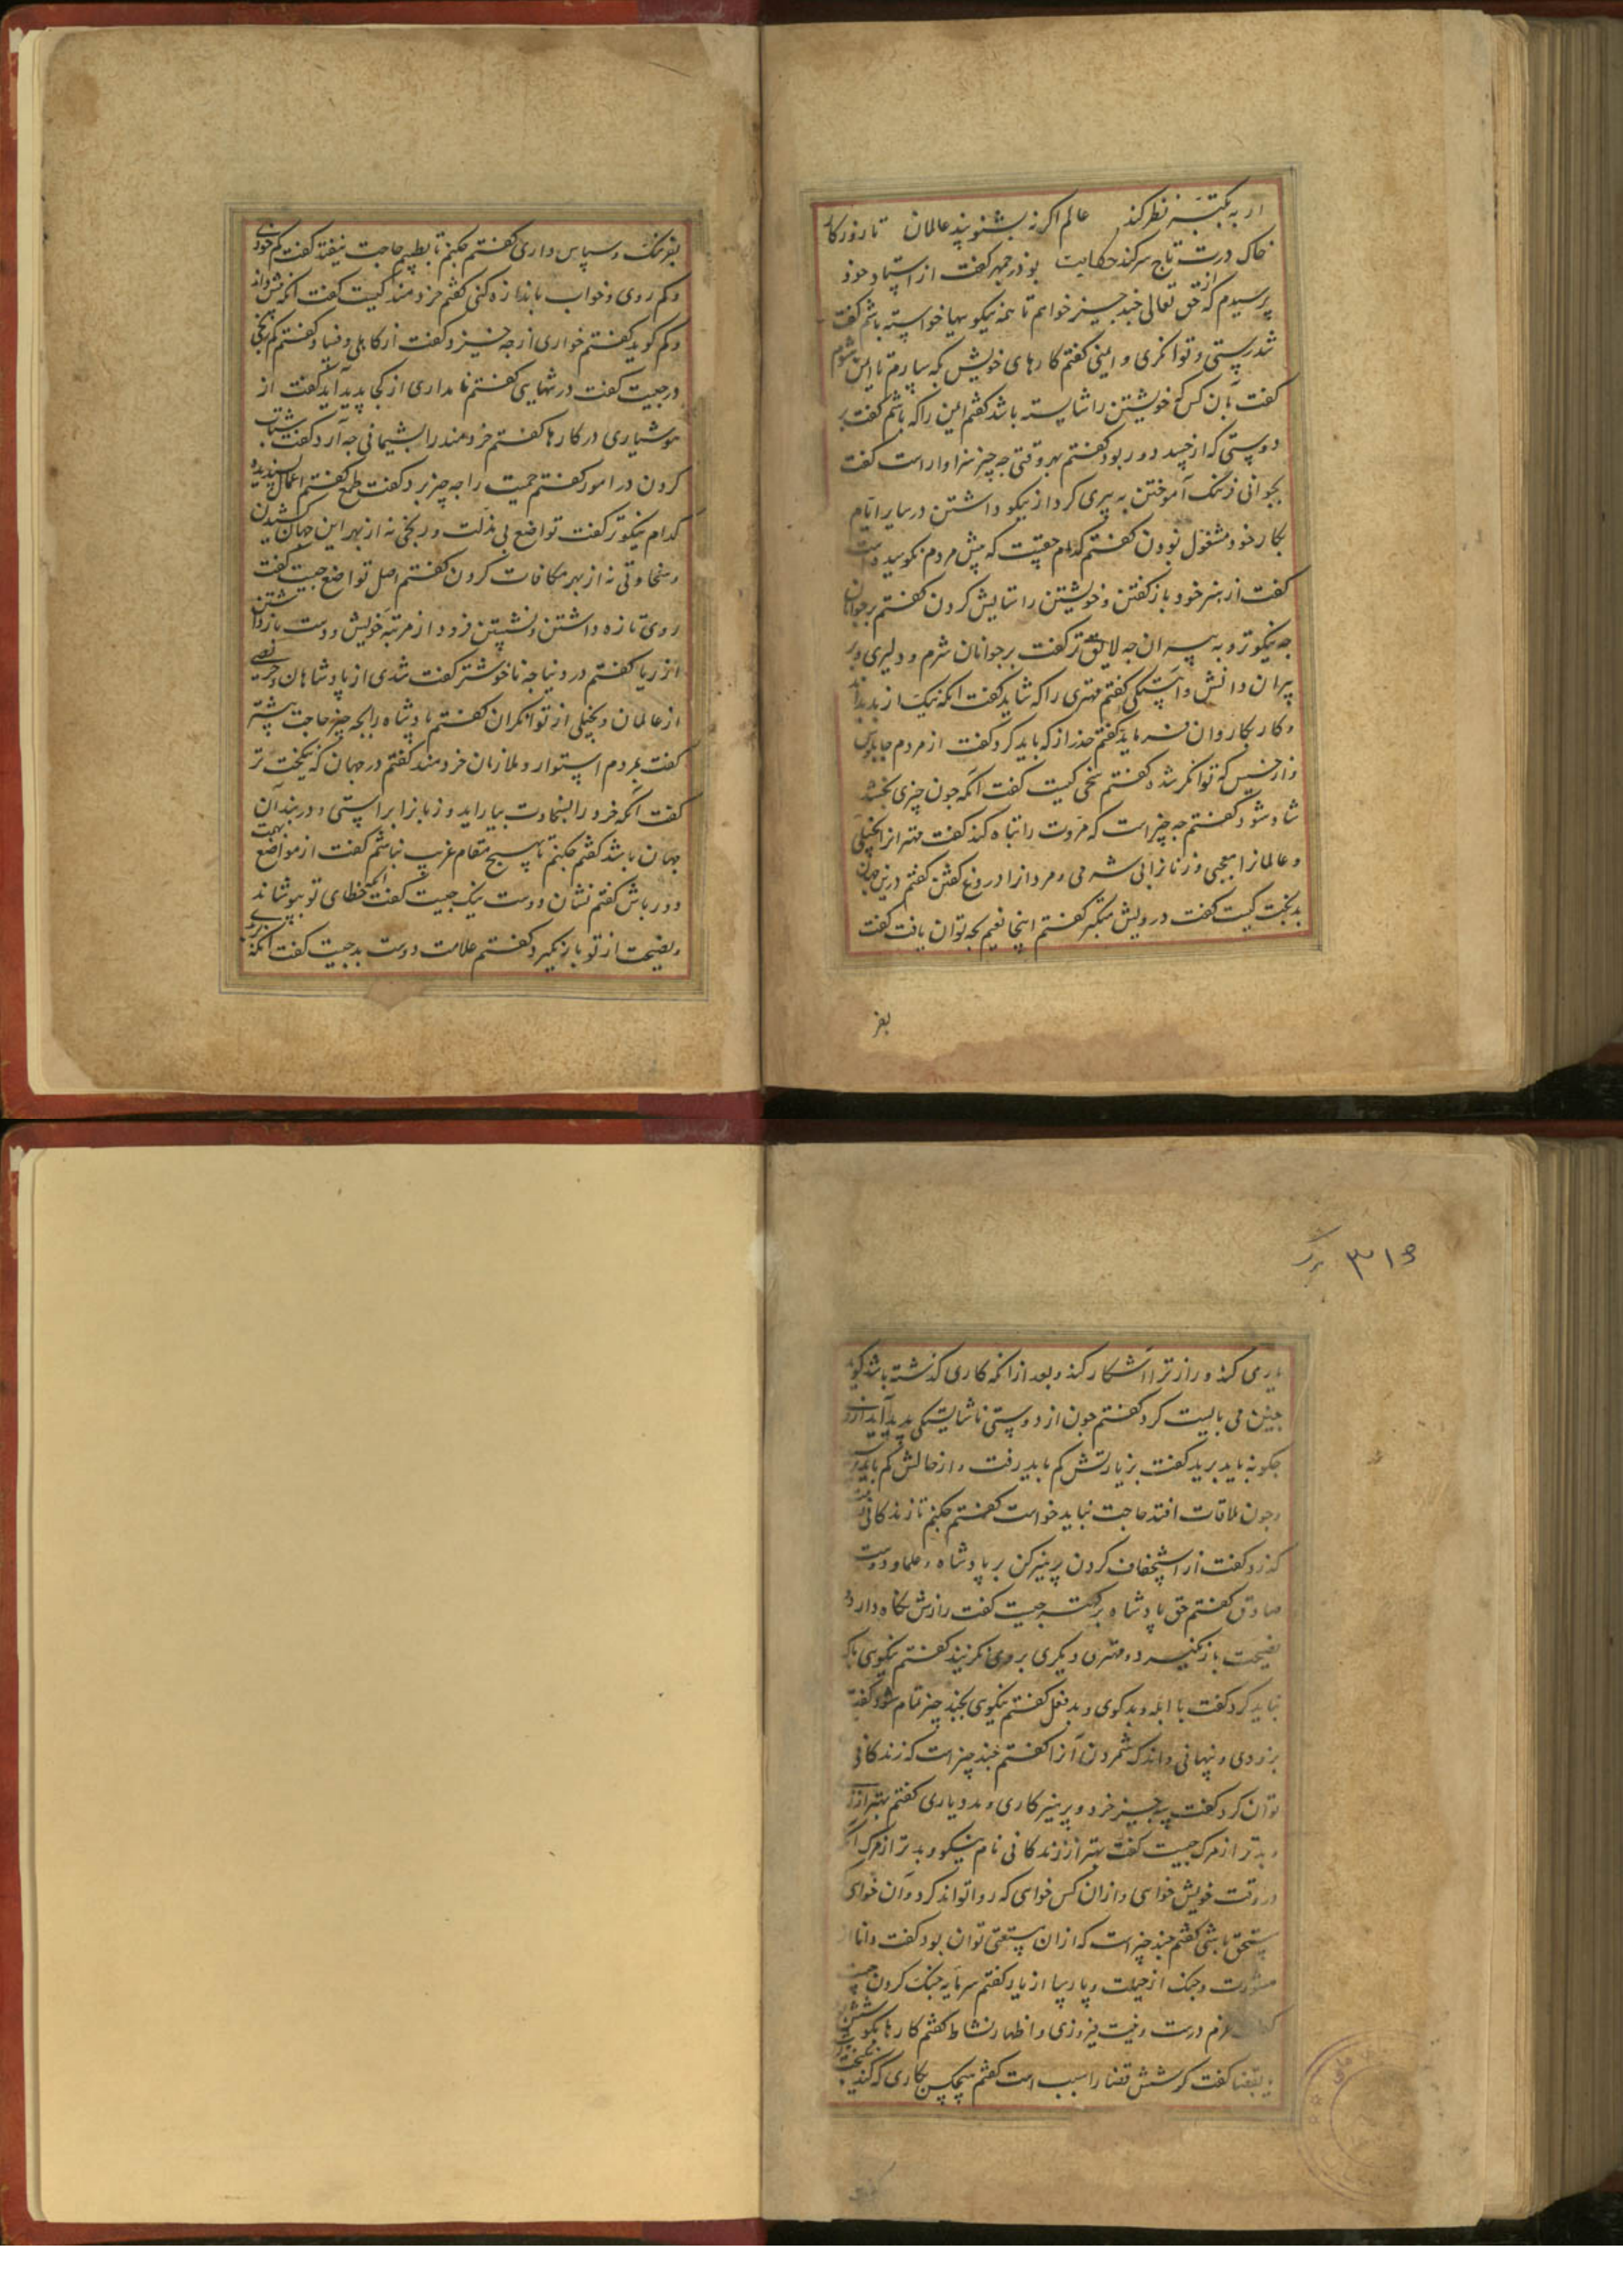 ار به تکبر نظر کند عالم اگر نه بشنو پند عالمان تا روزکار
خاک درت تاج سر کند حکایت بوذرجمهر کفت از استاد خود
پرسیدم که از حق تعالی جند جیز خواهم تا همه نیکویها خواسته باشم کفت
تندرستی و توانکری و ایمنی کفتم کارهای خویش بکه سپارم تا ایمن شوم
کفت بآن کس که خویشتن را شایسته باشد کفتم ایمن را که باشم کفت بر
دوستی که از حسد دور بود کفتم بهر وقتی جه چیز سزاوار است کفت
بجوانی فرهنک آموختن به پیری کردار نیکو داشتن در سایر ایام
بکار خود مشغول بودن کفتم کدام حقیست که پیش مردم نکوهیده است
کفت از هنر خود بازکفتن و خویشتن را ستایش کردن کفتم بر جوانان
جه نیکوتر و به پیران جه لایق تر کفت بر جوانان شرم و دلیری و بر
پیران دانش و آهستکی کفتم مهتری را که شاید کفت انکه نیک از بد بداند
و کار بکاردان فرماید کفتم حذر از که باید کرد کفت از مردم جابلوس
و از خسیس که توانکر شد کفتم سخی کیست کفت انکه جون چیزی بخشد
شاد شود کفتم جه چیز است که مروت را تباه کند کفت مهتران را بخیلی
و عالمانرا معجبی و زنانرا بی شرمی و مردانرا دروغ کفتن کفتم درین جهان
بدبخت کیست کفت درویش متکبر کفتم اینجا نعیم بجه توان یافت کفت
بفر
بفرهنک و سپاس داری کفتم جکنم تا بطبیبم حاجت نیفتد کفت کم خوری
و کم روی و خواب باندازه کنی کفتم خردمند کیست کفت آنکه بیش داند
و کم کوید کفتم خواری از جه خیزد کفت از کاهلی و فساد کفتم کم رنجی
در جیست کفت در تنهایی کفتم نامداری از کجا پدید آید کفت از
هوشیاری در کارها کفتم خردمند را بشیمانی جه آرد کفت شتاب
کردن در امور کفتم حمیت را جه چیز برد کفت طمع کفتم اعمال پسندیده
کدام نیکوتر کفت تواضع بی مذلت و رنجی نه از بهر این جهان کشیدن
و سخاوتی نه از بهر مکافات کردن کفتم اصل تواضع جیست کفت
روی تازه داشتن و نشستن فرود از مرتبه خویش و دست بازداشتن
از ریا کفتم در دنیا جه ناخوشتر کفت تندی از پادشاهان و حریصی
از عالمان و بخیلی از توانکران کفتم پادشاه را بجه چیز حاجت بیشتر
کفت بمردم استوار و ملازمان خردمند کفتم در جهان که نیکبخت تر
کفت آنکه خرد را بسخاوت بیاراید و زبانرا براستی و در بند آن
جهان باشد کفتم جکنم تا بهیج مقام غریب نباشم کفت از مواضع تهمت
دور باش کفتم نشان دوست نیک جیست کفت آنکه خطای تو بپوشاند
و نصیحت از تو بازنکیرد کفتم علامت دوست بد جیست کفت آنکه
۳۱۶
یاری کند و راز ترا آشکار کند و بعد از آنکه کاری کذشته باشد کوید
جنین می بایست کرد کفتم جون از دوستی ناشایستکی پدید آید از وی
جکونه باید برید کفت بزیارتش کم باید رفت و از حالش کم باید پرسید
و جون ملاقات افتد حاجت نباید خواست کفتم جکنم تا زندکانی
کذرد کفت از استخفاف کردن پرهیز کن بر پادشاه و علما و دوست
صادق کفتم حق پادشاه بر کهتر جیست کفت رازش نکاه دارد و
نصیحت بازنکیرد و مهتری دیکری بر وی نکزیند کفتم نیکویی با که
نباید کرد کفت با ابله و بدکوی و بدفعل کفتم نیکویی بجند چیز تمام شود کفت
بزودی و پنهانی و اندک شمردن آنرا کفتم بجند چیز است که زندکانی
توان کرد کفت بسه جیز خرد و پرهیزکاری و بردباری کفتم بهتر از زندکانی
و بدتر از مرک جیست کفت بهتر از زندکانی نام نیکو و بدتر از مرک آنکه
در وقت خویش خواهی و از آن کس خواهی که روا تواند کرد و آن خواهی
مستحق باشی کفتم جند چیز است که از آن مستغنی توان بود کفت دانا از
مشورت و جنک از حیلت و پارسا از یاد کفتم سرمایه جنک کردن جیست
کفت عزم درست و نیت فیروزی و اظهار نشاط کفتم کارها بکوشش
یا بقضا کفت کوشش قضا را سبب است کفتم هیچکس بکاری که کند